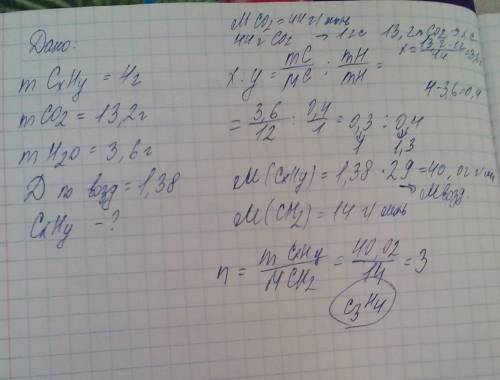 Дано:
m CxHy = 4г
m CO2 = 13,2г
m H2O = 3,6г
Д по возд = 1,38
CxHy - ?
M CO2 = 44 г/моль
44г CO2 → 12г C 13,2г CO2 → x C
x = 13,2·12/44 = 3,6г
4-3,6=0,4
x:y = mC/MC : mH/mH =
= 3,6/12 : 0,4/1 = 0,3 : 0,4
1 1,3
M(CxHy) = 1,38 · 29 = 40,02 г/моль
→ M возд.
M(CH2) = 14 г/моль
n = m CxHy/M CH2 = 40,02/14 = 3
C3H4